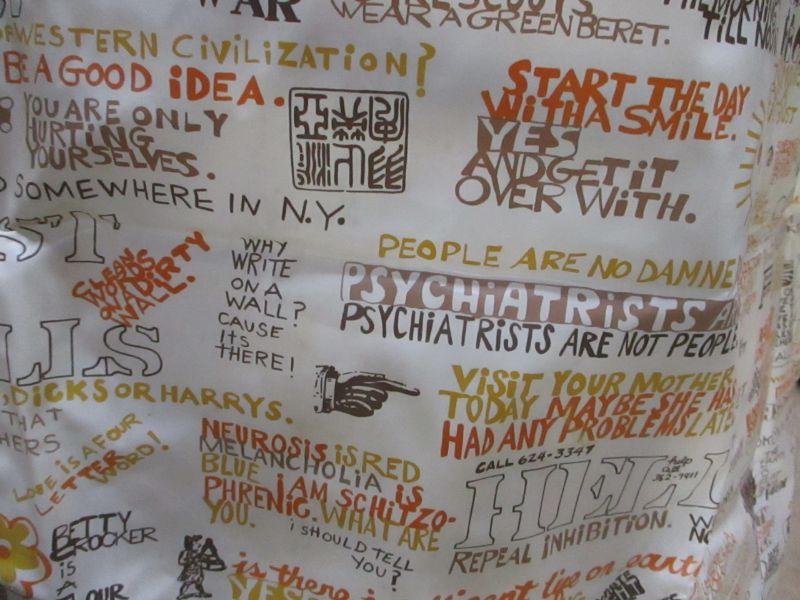 WAR
WEAR A GREEN BERET.
TILL
WESTERN CIVILIZATION?
BE A GOOD IDEA.
YOU ARE ONLY
HURTING
YOURSELVES.
START THE DAY
WITH A SMILE.
YES
AND GET IT
OVER WITH.
SOMEWHERE IN N.Y.
CLEAN
WORDS
ON A DIRTY
WALL.
WHY
WRITE
ON A
WALL?
CAUSE
ITS
THERE!
PEOPLE ARE NO DAMNE
PSYCHIATRISTS A
PSYCHIATRISTS ARE NOT PEOPLE
DICKS OR HARRYS.
THAT
HERS
LOVE IS A FOUR
LETTER WORD!
VISIT YOUR MOTHER
TODAY MAYBE SHE HAS
HAD ANY PROBLEMS LATE
NEUROSIS IS RED
MELANCHOLIA IS
BLUE I AM SCHITZO-
PHRENIC. WHAT ARE
YOU.
I SHOULD TELL
YOU?
CALL 624-3347
HELL
help
362-7411
REPEAL INHIBITION.
BETTY
CROCKER
IS
A
OUR
is there
igent life on earth
YES